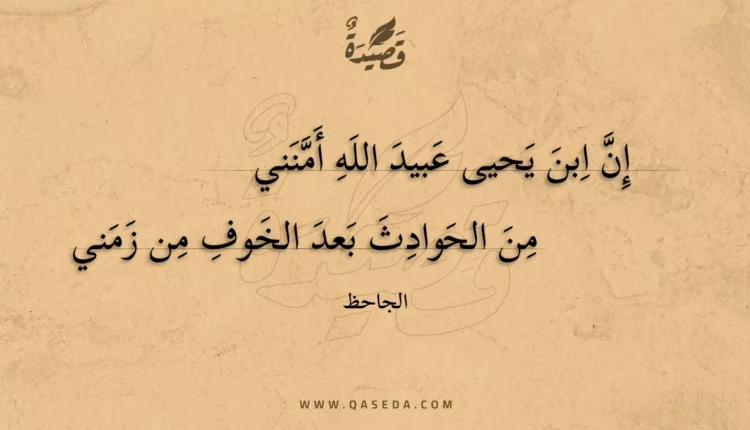 قَصِيْدَةٌ
إِنَّ اِبنَ يَحيى عَبيدَ اللَهِ أَمَّنَني
مِنَ الحَوادِثَ بَعدَ الخَوفِ مِن زَمَني
الجاحظ
WWW.QASEDA.COM